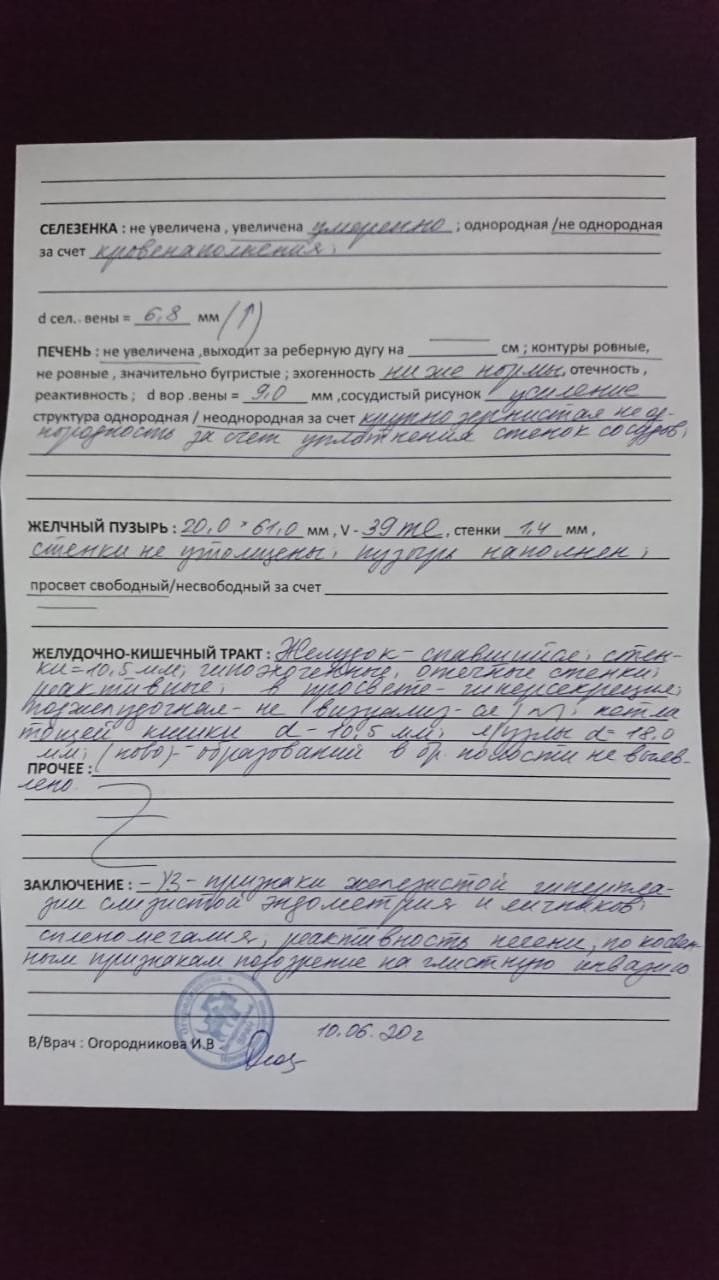 СЕЛЕЗЕНКА : не увеличена , увеличена умеренно ; однородная /не однородная
за счет кровенаполнения.
d сел. вены = 6,8 мм (↑)
ПЕЧЕНЬ : не увеличена ,выходит за реберную дугу на ________ см ; контуры ровные,
не ровные , значительно бугристые ; эхогенность ниже нормы, отечность ,
реактивность ; d вор .вены = 9,0 мм ,сосудистый рисунок усиление
структура однородная / неоднородная за счет крупнозернистая неод-
нородность за счет уплотнения стенок сосудов,
ЖЕЛЧНЫЙ ПУЗЫРЬ : 20,0 × 61,0 мм , V - 39 ml , стенки 1,4 мм ,
стенки не утолщены, пузырь наполнен,
просвет свободный/несвободный за счет
ЖЕЛУДОЧНО-КИШЕЧНЫЙ ТРАКТ : Желудок - спавшийся, стен-
ки = 10,5 мм, гипоэхогенные, отечные стенки,
реактивные, в просвете - гиперсекреция,
поджелудочная - не визуализ-ся (N), петля
тощей кишки d - 10,5 мм, л/узлы d = 18,0
мм, (ново)- образований в бр. полости не выяв-
ПРОЧЕЕ :
лено.
ЗАКЛЮЧЕНИЕ : - УЗ - признаки железистой гиперпла-
зии слизистой эндометрия и яичников,
спленомегалия, реактивность печени, по косвен-
ным признакам подозрение на глистную инвазию
10.06.20г
В/Врач : Огородникова И.В